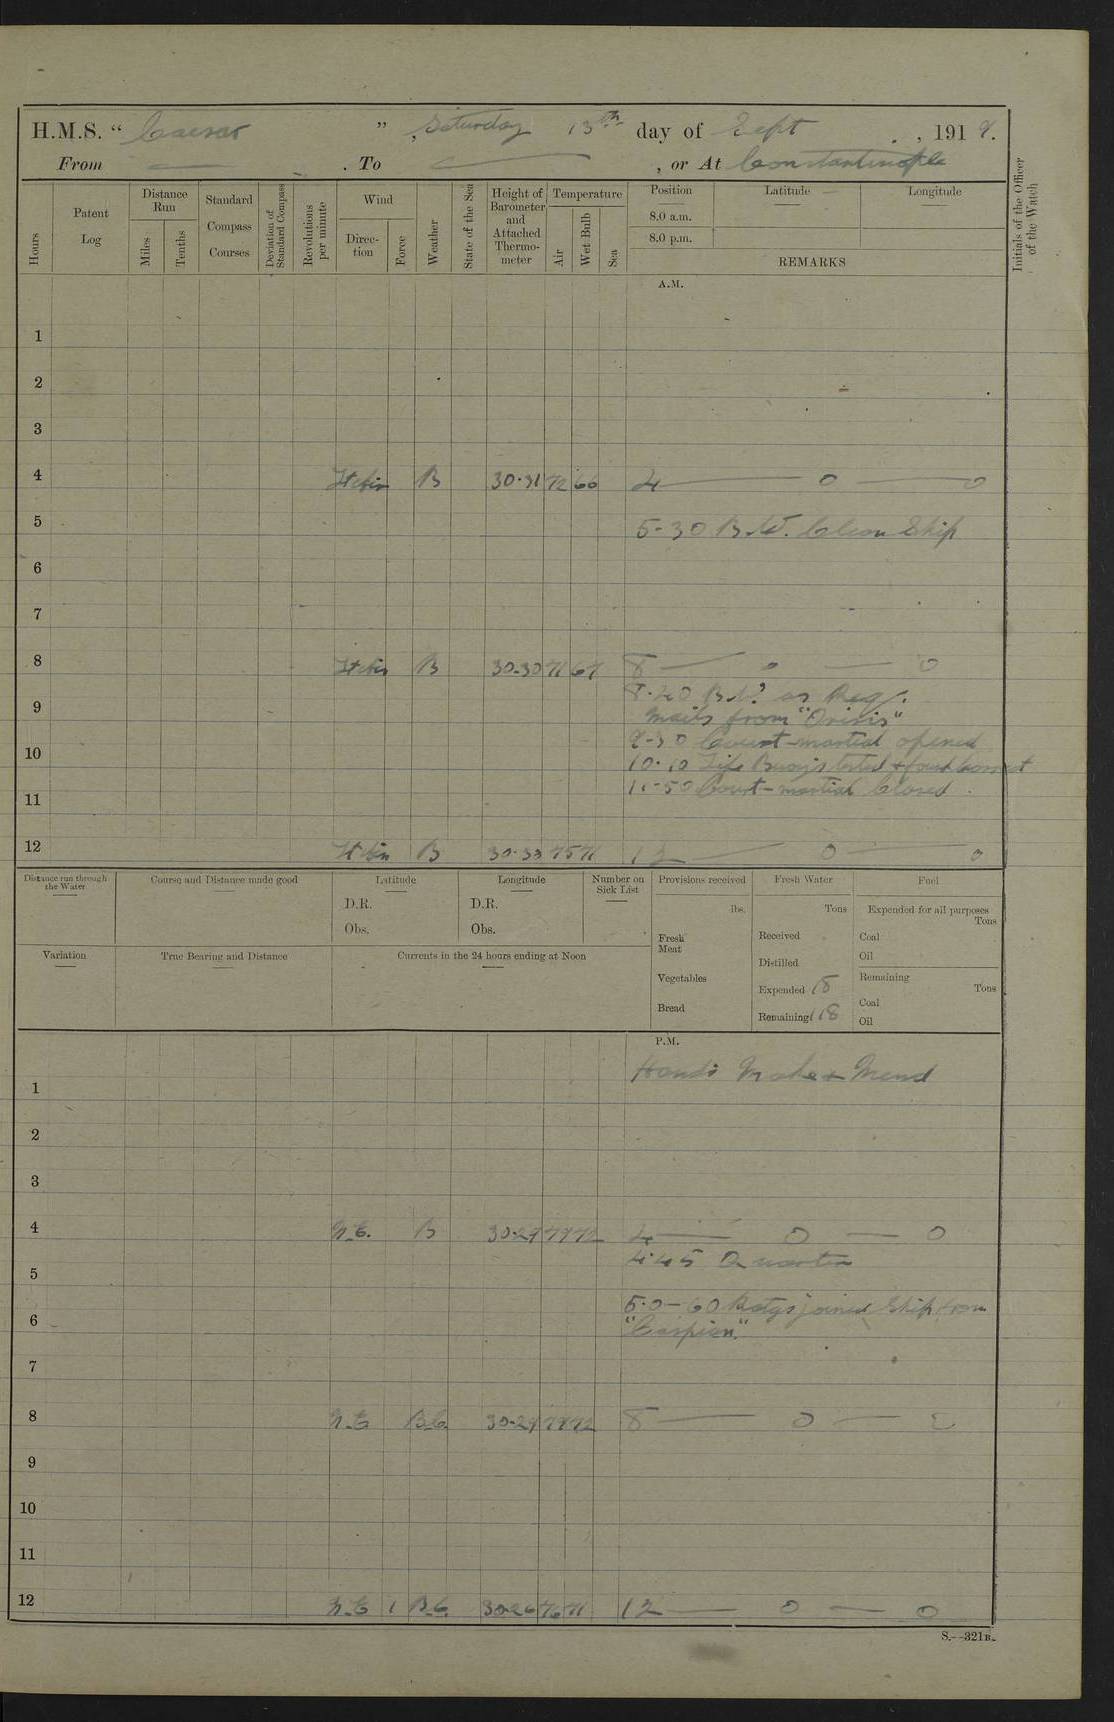 H.M.S. “ Caesar ” , Saturday 13th day of Sept , 1919.
From — . To — , or At Constantinople
Hours
Patent Log
Distance Run
Miles
Tenths
Standard Compass Courses
Deviation of Standard Compass
Revolutions per minute
Wind
Direction
Force
Weather
State of the Sea
Height of Barometer and Attached Thermometer
Temperature
Air
Wet Bulb
Sea
Position Latitude Longitude
8.0 a.m.
8.0 p.m.
REMARKS
Initials of the Officer of the Watch
A.M.
1
2
3
4 B 30.31 72 66 4 — 0 — 0
5 5-30 Clean Ship
6
7
8 B 30.30 71 67 8 — 0 — 0
8.40 as Req.
9 Mails from
9-30 Court-martial opened
10 10.10 Life Buoys tested & found correct
11 11-50 Court-martial Closed.
12 B 30.33 75 71 12 — 0 — 0
Distance run through the Water
Course and Distance made good
Latitude
D.R.
Obs.
Longitude
D.R.
Obs.
Number on Sick List
Provisions received
lbs.
Fresh Meat
Vegetables
Bread
Fresh Water
Tons
Received
Distilled
Expended 18
Remaining 118
Fuel
Expended for all purposes
Tons
Coal
Oil
Remaining
Tons
Coal
Oil
Variation
True Bearing and Distance
Currents in the 24 hours ending at Noon
P.M.
Hands Make & Mend
1
2
3
4 N.E. B 30.29 72 4 — 0 — 0
4.45 Quarters
5
5.0 - 60 Ratgs joined Ship from
6 "Caspian."
7
8 N.E B.C. 30.29 72 8 — 0 — 0
9
10
11
12 N.E 1 B.C. 30.26 76 71 12 — 0 — 0
S.—321B.